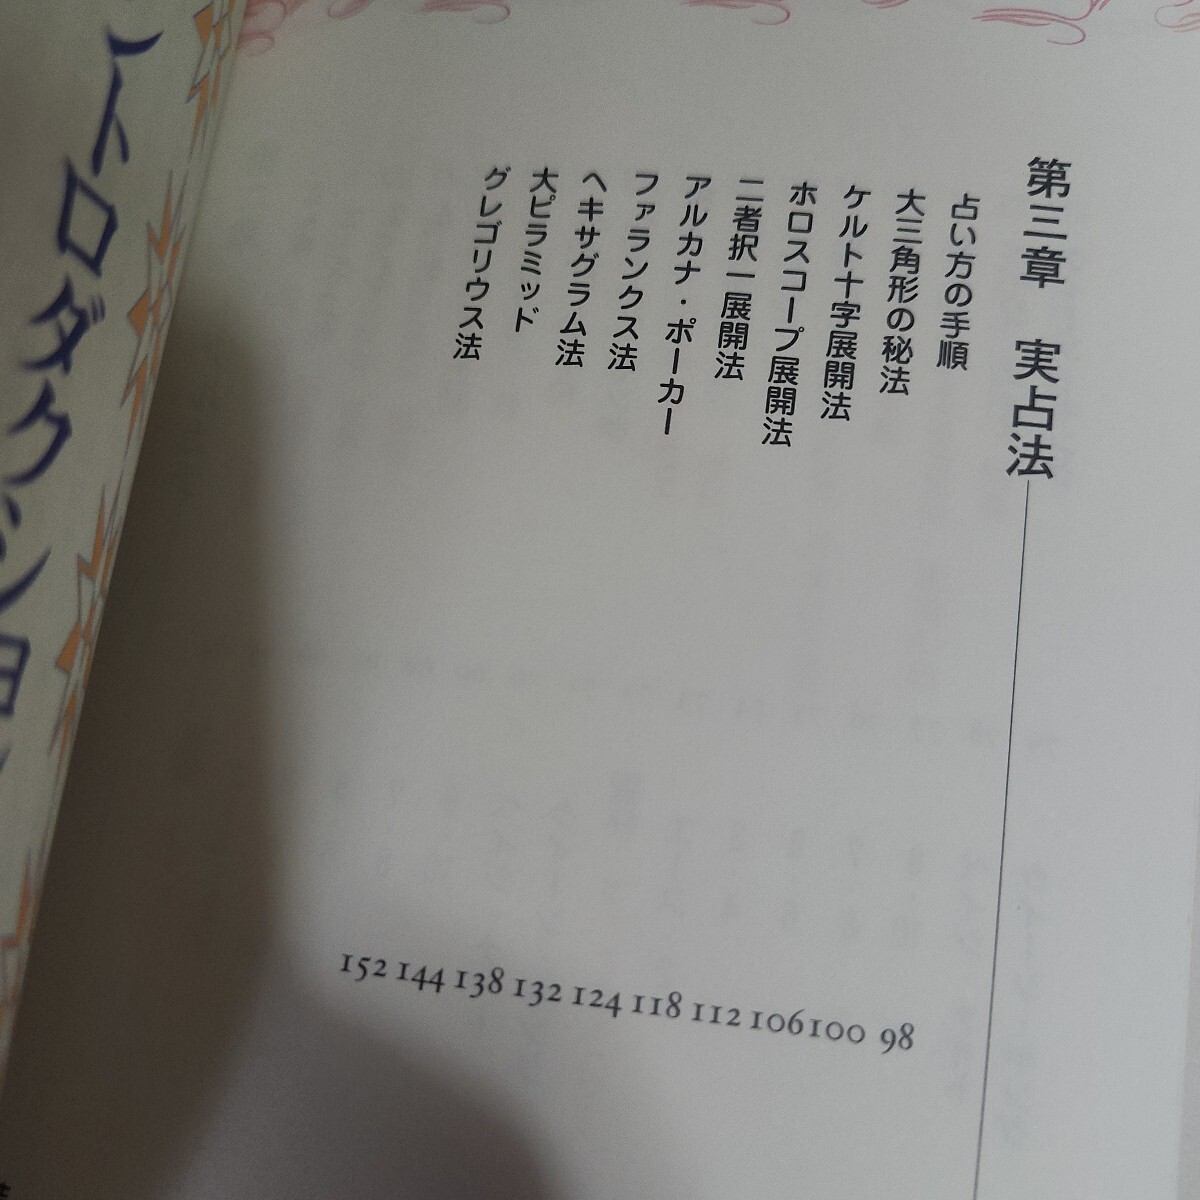 第三章　実占法
占い方の手順
大三角形の秘法
ケルト十字展開法
ホロスコープ展開法
二者択一展開法
アルカナ・ポーカー
ファランクス法
ヘキサグラム法
大ピラミッド
グレゴリウス法
98
100
106
112
118
124
132
138
144
152
トロダクショ